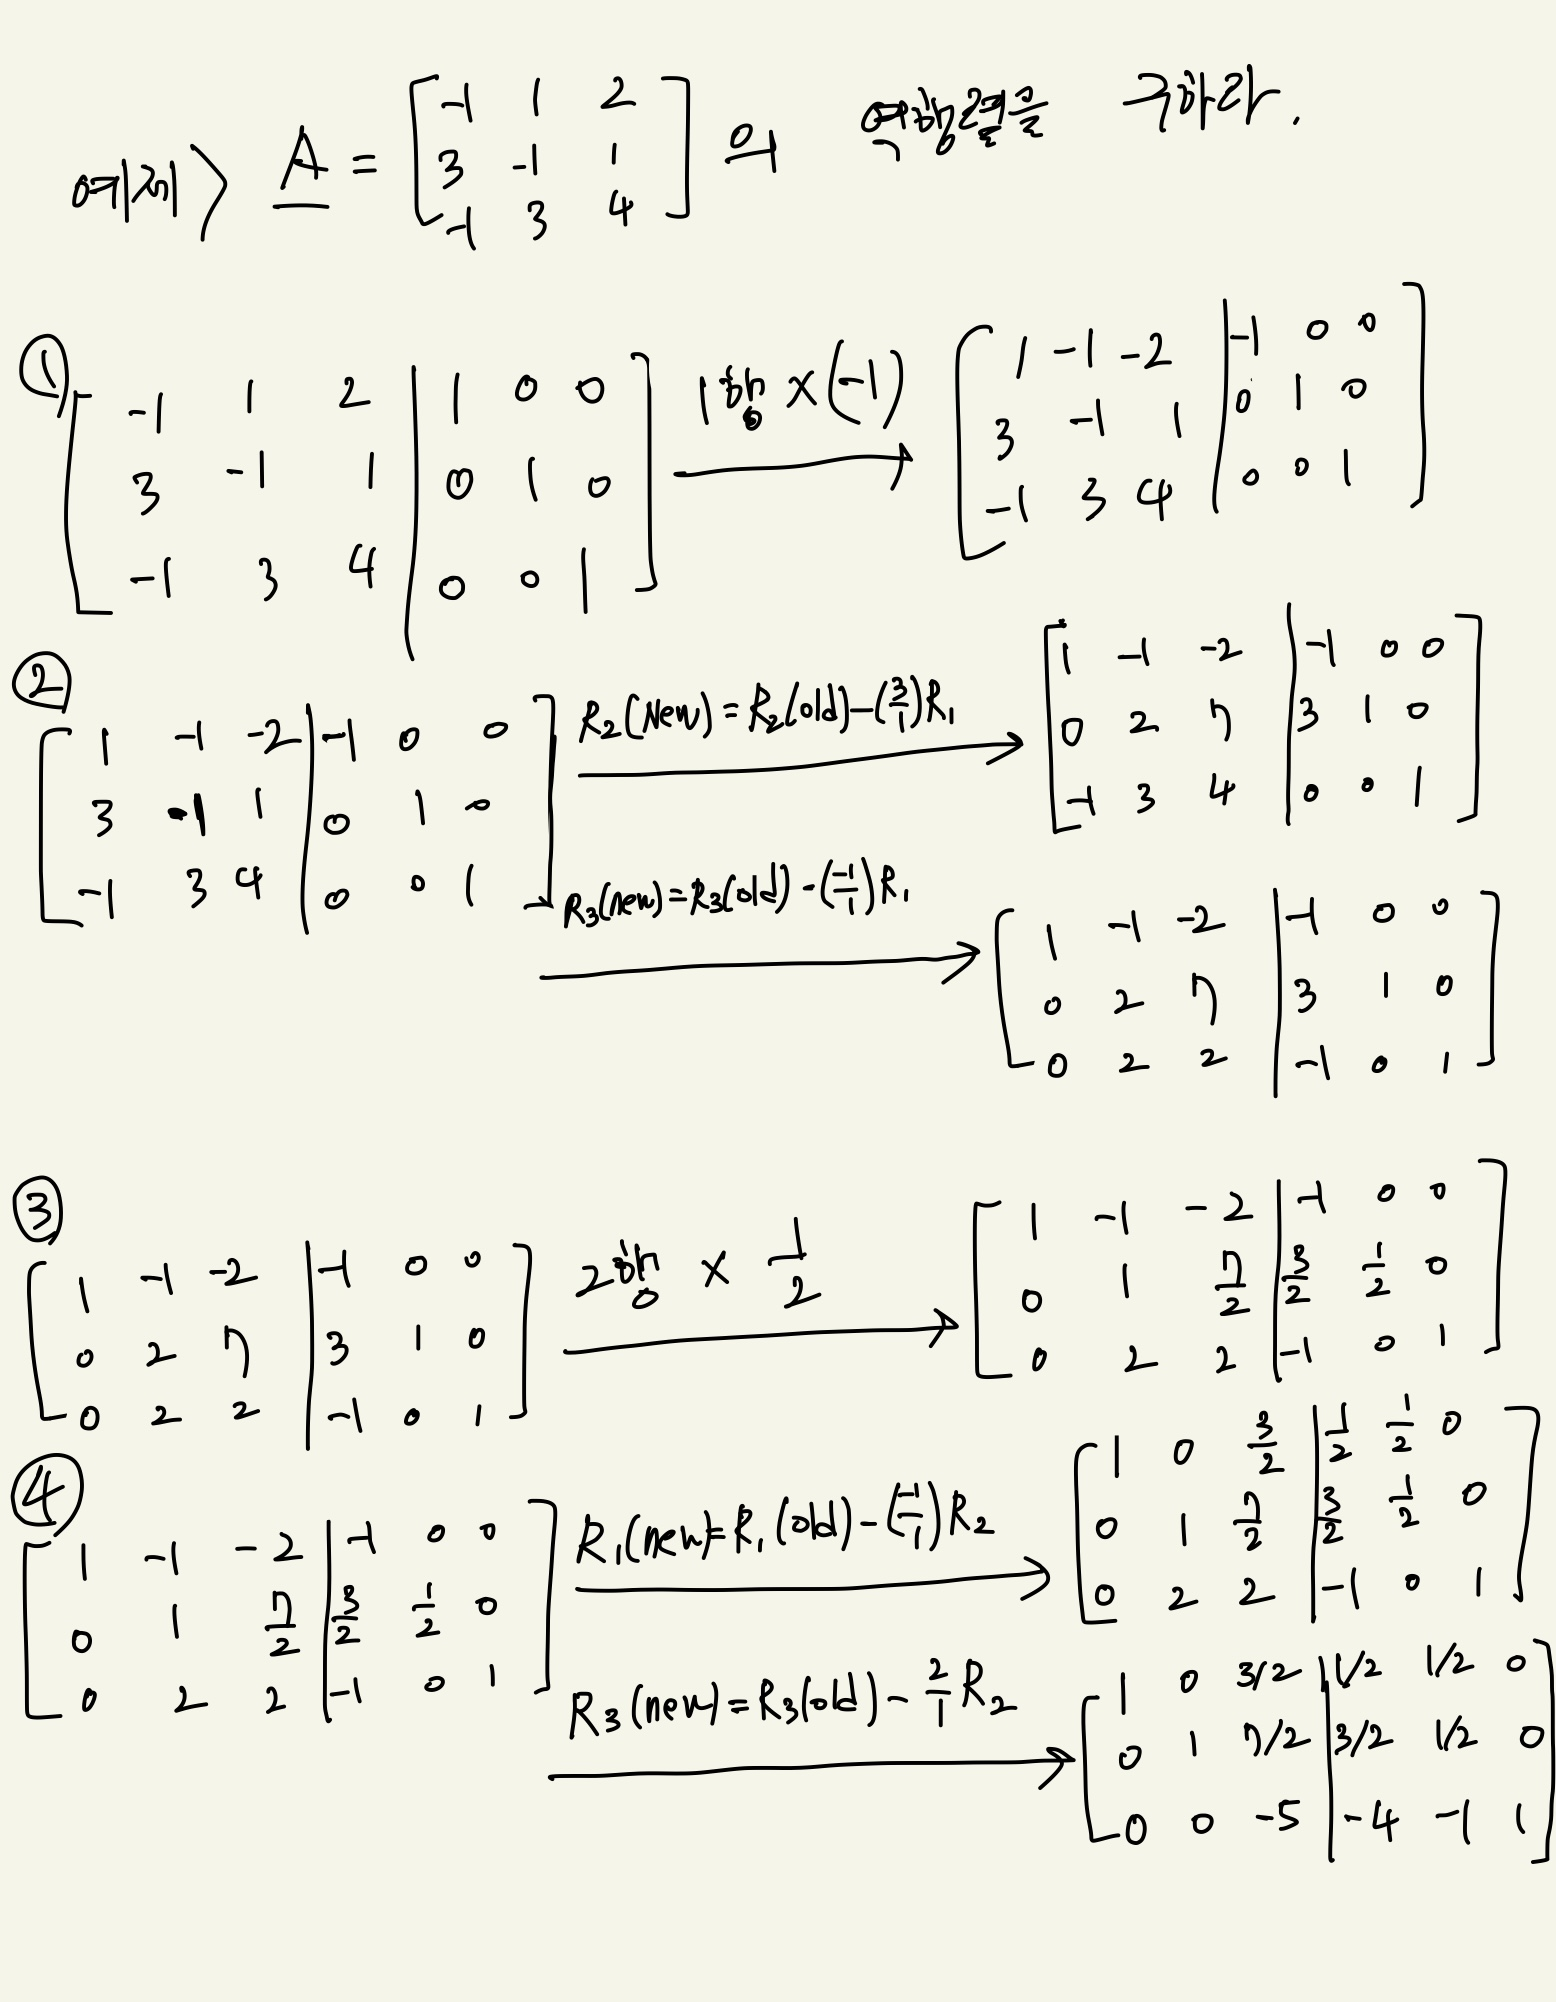 예제> A = [ -1 1 2
3 -1 1
-1 3 4 ] 의 역행렬을 구하라.
①
[ -1 1 2 | 1 0 0
3 -1 1 | 0 1 0
-1 3 4 | 0 0 1 ]
1행 × (-1)
[ 1 -1 -2 | -1 0 0
3 -1 1 | 0 1 0
-1 3 4 | 0 0 1 ]
②
[ 1 -1 -2 | -1 0 0
3 -1 1 | 0 1 0
-1 3 4 | 0 0 1 ]
R₂(New) = R₂(old) - (3/1)R₁
[ 1 -1 -2 | -1 0 0
0 2 7 | 3 1 0
-1 3 4 | 0 0 1 ]
R₃(new) = R₃(old) - (-1/1)R₁
[ 1 -1 -2 | -1 0 0
0 2 7 | 3 1 0
0 2 2 | -1 0 1 ]
③
[ 1 -1 -2 | -1 0 0
0 2 7 | 3 1 0
0 2 2 | -1 0 1 ]
2행 × 1/2
[ 1 -1 -2 | -1 0 0
0 1 7/2 | 3/2 1/2 0
0 2 2 | -1 0 1 ]
④
[ 1 -1 -2 | -1 0 0
0 1 7/2 | 3/2 1/2 0
0 2 2 | -1 0 1 ]
R₁(new) = R₁(old) - (-1/1)R₂
[ 1 0 3/2 | 1/2 1/2 0
0 1 7/2 | 3/2 1/2 0
0 2 2 | -1 0 1 ]
R₃(new) = R₃(old) - 2/1 R₂
[ 1 0 3/2 | 1/2 1/2 0
0 1 7/2 | 3/2 1/2 0
0 0 -5 | -4 -1 1 ]